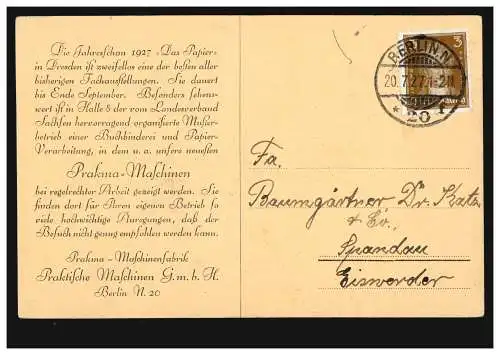 Die Jahresschau 1927 „Das Papier“
in Dresden ist zweifellos eine der besten aller
bisherigen Fachausstellungen. Sie dauert
bis Ende September. Besonders sehens-
wert ist in Halle 8 der vom Landesverband
Sachsen hervorragend organisierte Muster-
betrieb einer Buchbinderei und Papier-
Verarbeitung, in dem u. a. unsere neuesten
Prakma-Maschinen
bei regelrechter Arbeit gezeigt werden. Sie
finden dort für Ihren eigenen Betrieb so
viele hochwichtige Anregungen, daß der
Besuch nicht genug empfohlen werden kann.
Prakma - Maschinenfabrik
Praktische Maschinen G. m. b. H.
Berlin N. 20
3
BERLIN N
20.7.27.1-2N
* 20
Fa.
Baumgärtner Dr. Katz
& Co.,
Spandau
Eiswerder